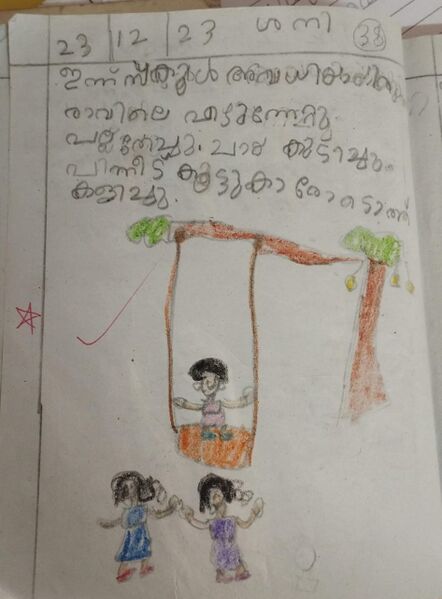 23 12 23 ശനി 38
ഇന്ന് സ്കൂൾ അവധിയായിരുന്നു
രാവിലെ എഴുന്നേറ്റു
പല്ലുതേച്ചു. ചായ കുടിച്ചു.
പിന്നീട് കൂട്ടുകാരോടൊത്ത്
കളിച്ചു.